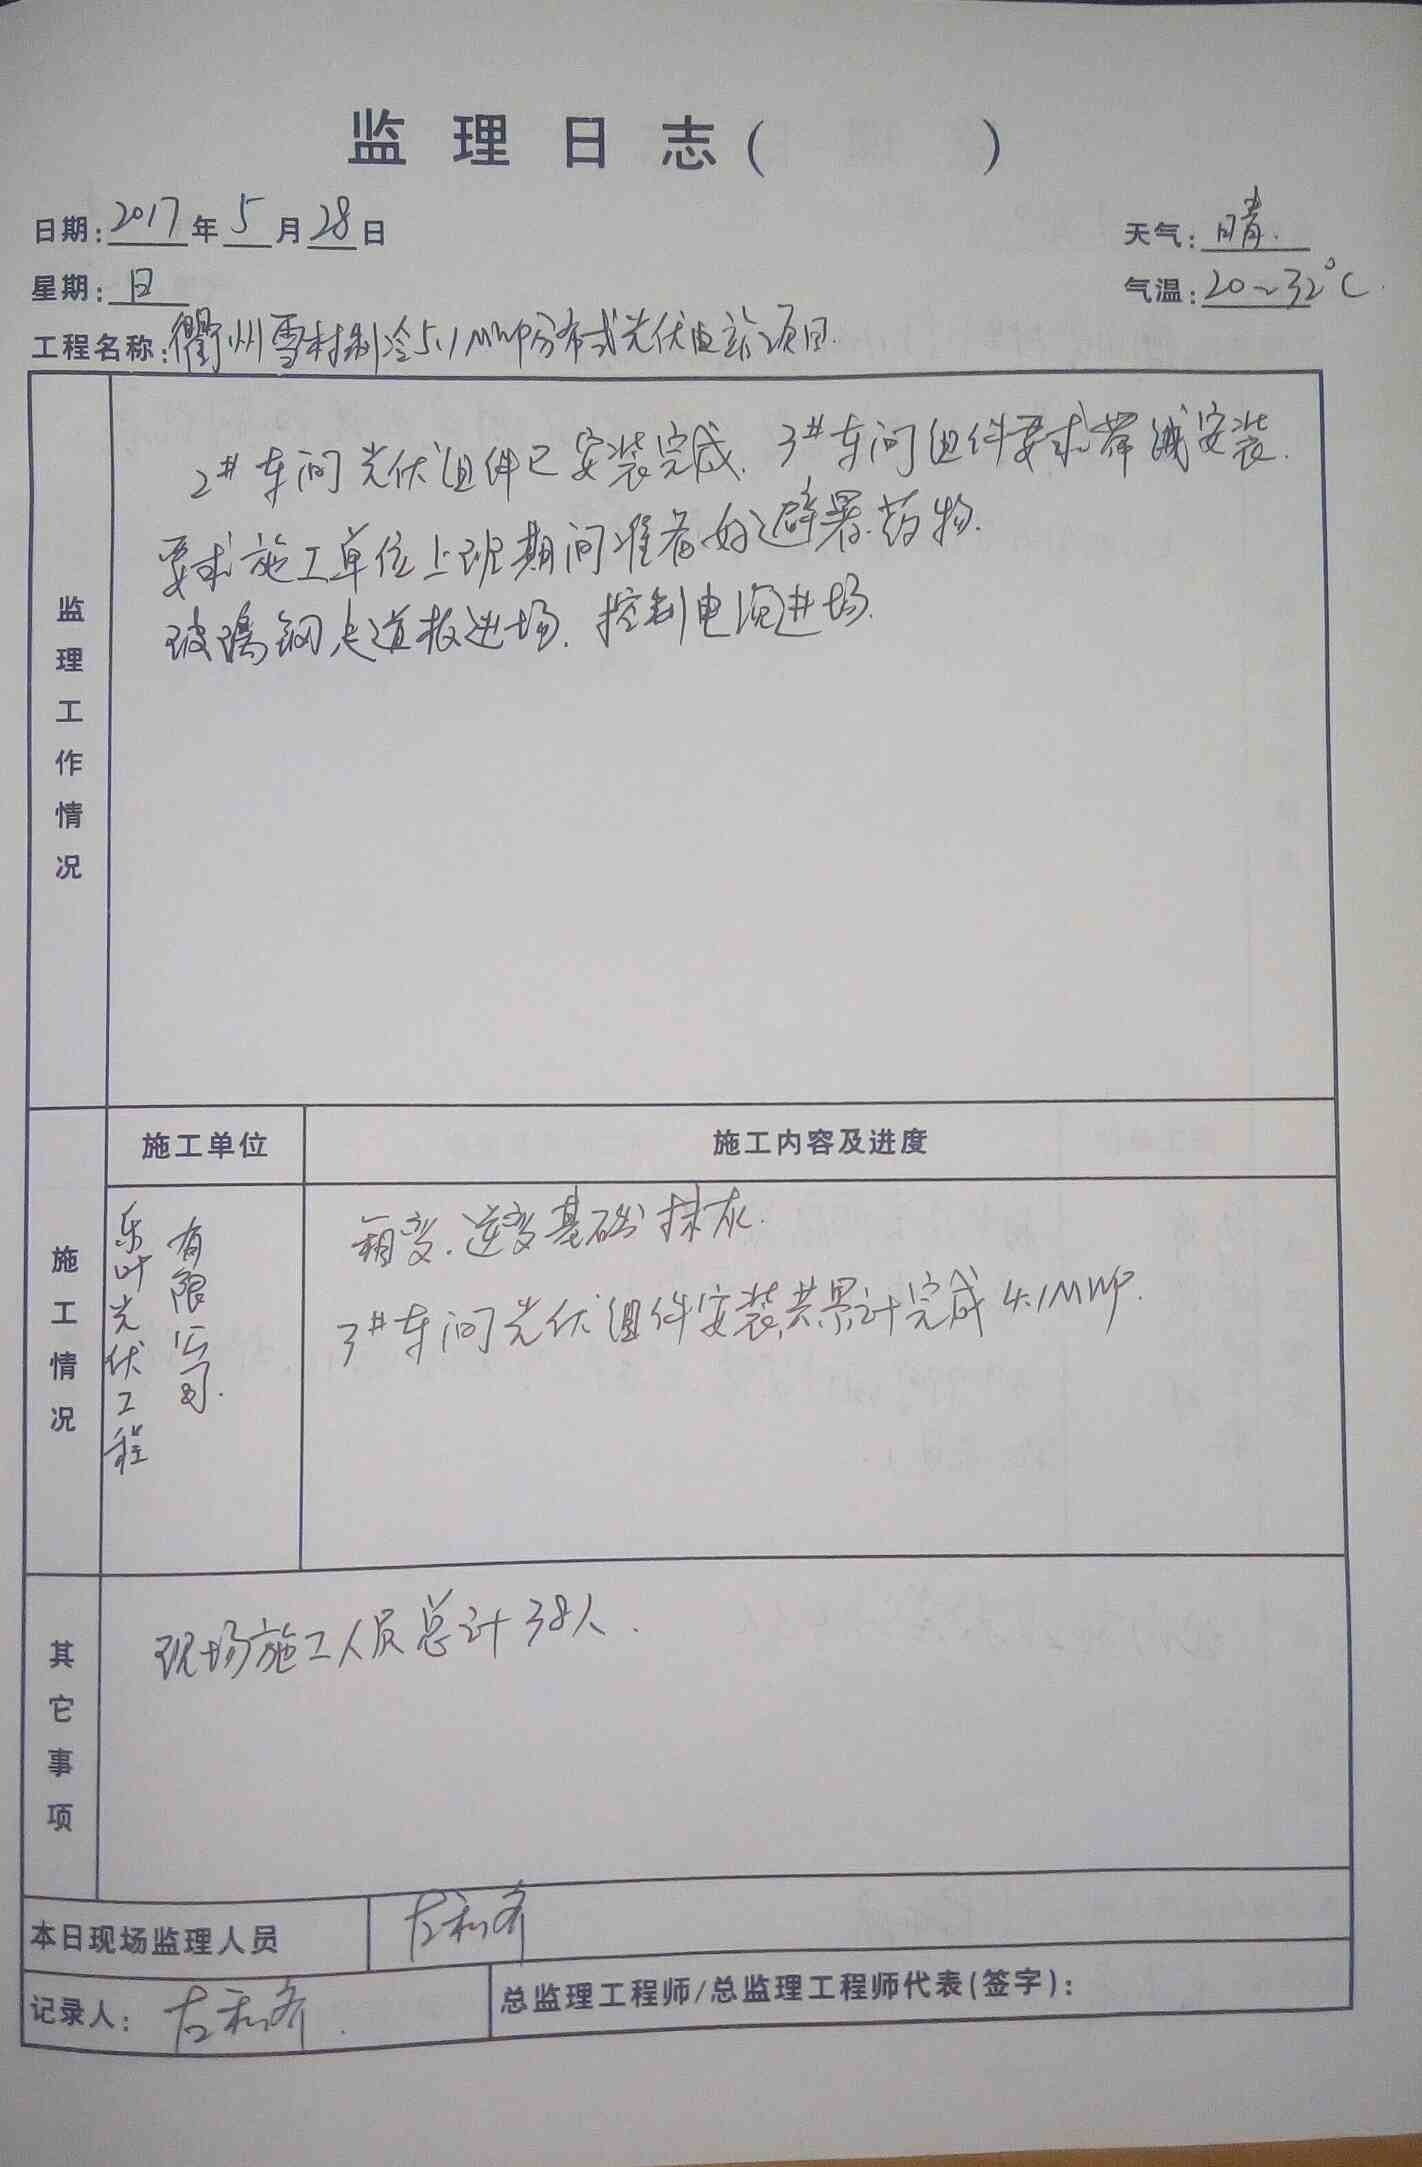 监理日志（ ）
日期：2017年5月28日 天气：晴.
星期：日 气温：20~32℃.
工程名称：衢州雪村制冷5.1MWP分布式光伏电站项目.
监理工作情况
2#车间光伏组件已安装完成. 3#车间组件要求带线安装.
要求施工单位上班期间准备好避暑药物.
玻璃钢走道板进场. 控制电缆进场.
施工情况
施工单位 施工内容及进度
东叶光伏工程
有限公司.
箱变.逆变基础抹灰.
3#车间光伏组件安装,共累计完成4.1MWP.
其它事项
现场施工人员总计38人.
本日现场监理人员
记录人：
总监理工程师/总监理工程师代表(签字)：